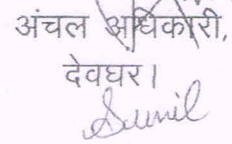 अंचल अधिकारी,
देवघर।
Sunil